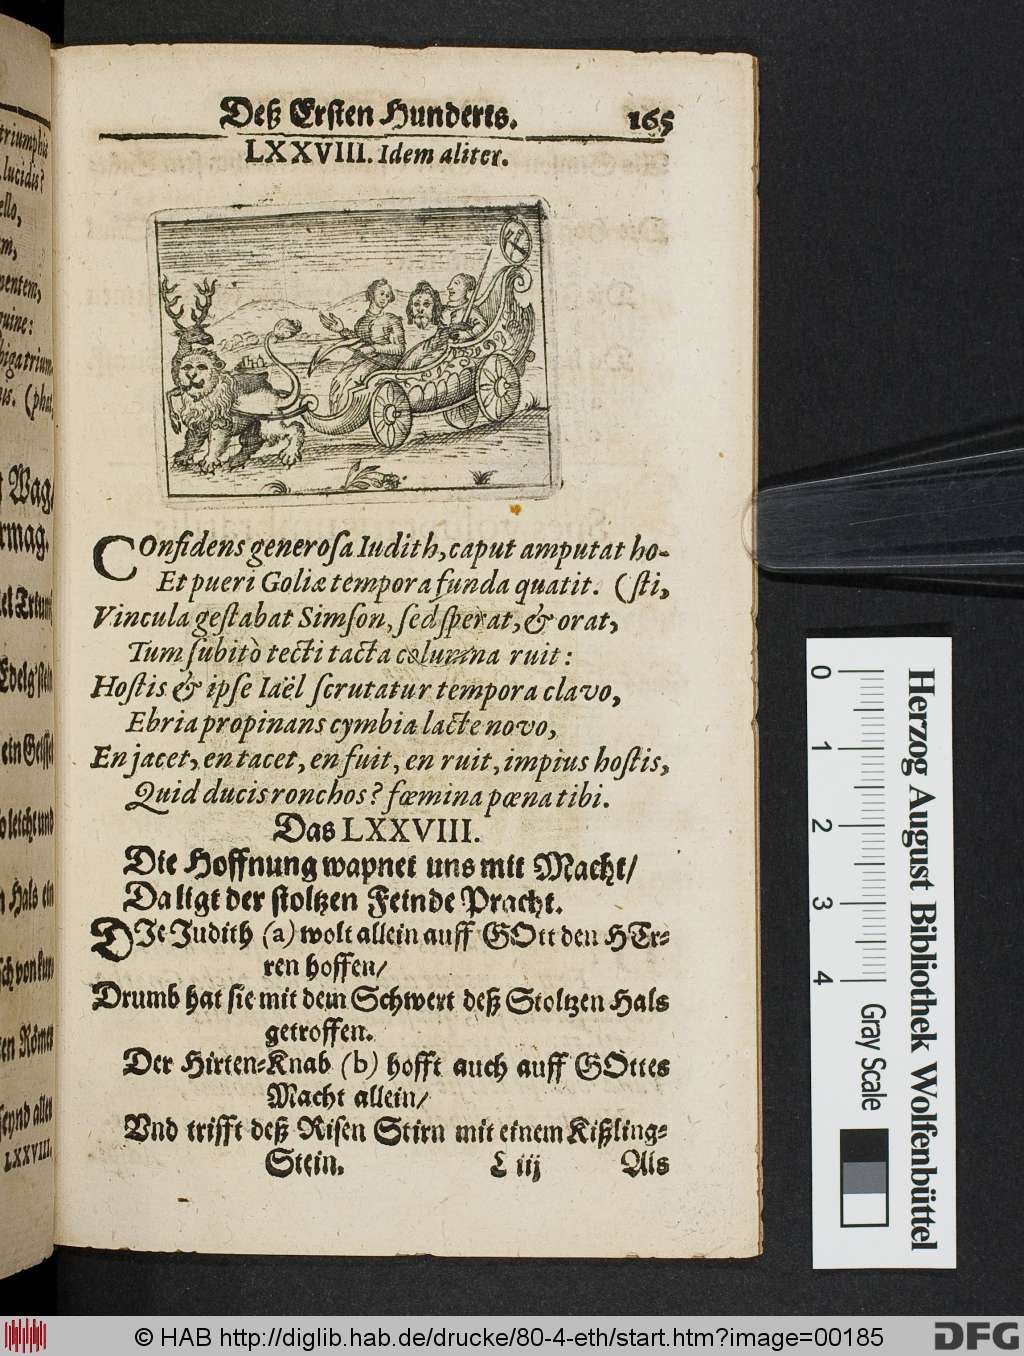 triumphis
lucidis?
ello,
em,
nentem,
guine:
bigatrium
nis. (phat
Wag
rmag.
Edelg'stein
ein Geissel
so leicht und
Hals ein
sch von kurz
ten Römer
seynd allen
LXXVIII.
Deß Ersten Hunderts. 165
LXXVIII. Idem aliter.
COnfidens generoſa Iudith, caput amputat ho-
Et pueri Goliæ tempora funda quatit. (ſti,
Vincula geſtabat Simſon, ſed ſperat, & orat,
Tum ſubitò tecti tacta columna ruit:
Hoſtis & ipſe Iaël ſcrutatur tempora clavo,
Ebria propinans cymbia lacte novo,
En jacet, en tacet, en fuit, en ruit, impius hoſtis,
Quid ducis ronchos? fœmina pœna tibi.
Das LXXVIII.
Die Hoffnung wapnet uns mit Macht/
Da ligt der ſtoltzen Feinde Pracht.
DJe Judith (a) wolt allein auff GOtt den HEr-
ren hoffen/
Drumb hat ſie mit dem Schwert deß Stoltzen Hals
getroffen.
Der Hirten-Knab (b) hofft auch auff GOttes
Macht allein/
Vnd trifft deß Riſen Stirn mit einem Kißling-
Stein. L iij Als
0 1 2 3 4
Herzog August Bibliothek Wolfenbüttel
Gray Scale
© HAB http://diglib.hab.de/drucke/80-4-eth/start.htm?image=00185
DFG